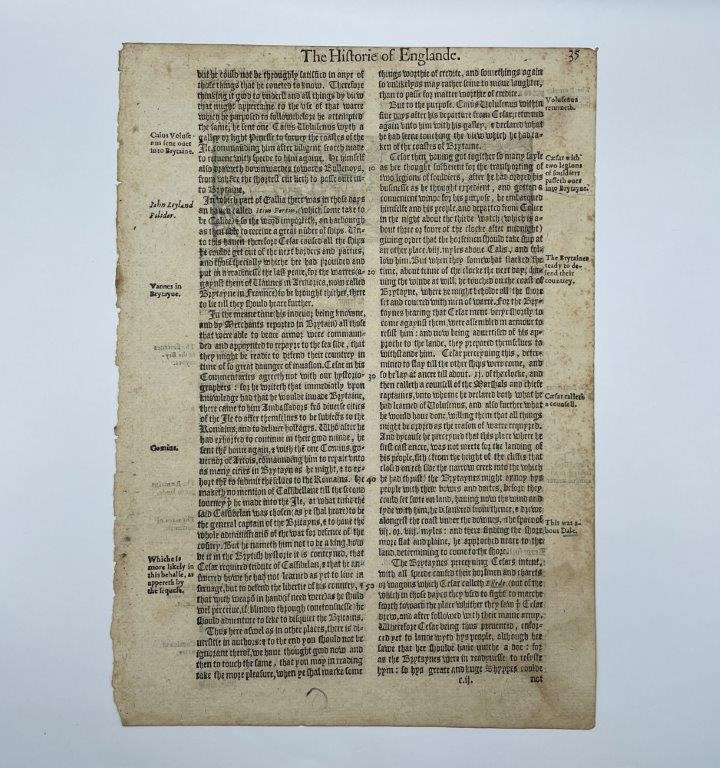 The Historie of Englande.
35
but he could not be throughly satisfied in anye of
those things that he coueted to know. Therefore
thinking it good to vnderstand all things by view
that might appertaine to the vse of that warre
which he purposed to follow: before he attempted
the same, he sent one Caius Volusenus wyth a
galley or light Pinesse to suruey the coastes of the
Ile, commanding him after diligent search made
to returne with speede to him againe. He himself
also draweth downewardes towards Bullenoys,
from whence the shortest cut lieth to passe ouer in-
to Brytaine.
In which part of Gallia there was in those days
an hauen called Itius Portus, which some take to
be Calice, &
so the word importeth, an harbough
as then able to receiue a great nũber of ships. Vn-
to this hauen therefore Cesar caused all the ships
he coulde get out of the next borders and parties,
and those specially whiche he had prouided and
put in a readinesse the last yeare, for the warres a-
gaynst them of Vannes in Armorica, now called
Brytaine in Fraunce) to be brought thither, there
to lie till they should heare further.
In the meane time his indeuor being knowne,
and by Merchants reported in Brytain) all those
that were able to beare armor were commaun-
ded and appoynted to repayre to the sea side, that
they might be readie to defend their countrey in
time of so great daunger of inuasion. Cesar in his
Commentaries agreeth not with our hystorio-
graphers: for he writeth that immediatly vpon
knowledge had that he woulde inuade Brytaine,
there came to him Ambassadors frõ diuerse cities
of the Ile to offer themselues to be subiects to the
Romains, and to deliuer hostages. Who after he
had exhorted to continue in their good minde, he
sent thẽ home again, & with thẽ one Comius go-
uernor of Artois, cõmaunding him to repair vnto
as many cities in Brytayn as he might, & to ex-
hort thẽ to submit thẽselues to the Romains. He
maketh no mention of Cassibellane till the second
iourney yͤ he made into the Ile, at what time the
said Cassibelan was chosen (as ye shal heare) to be
the general captain of the Britayns, & to haue the
whole administratiõ of the war for defence of the
coũtry. But he nameth him not to be a king, how
be it in the Brytish hystorie it is conteyned, that
Cesar required tribute of Cassibelan, & that he an-
swered howe he had not learned as yet to liue in
seruage, but to defend the libertie of his countrey, &
that with weapõ in hand (if need were) as he shuld
wel perceiue, if blinded through couetousnesse) he
should aduenture to seke to disquiet the Britains.
Thus here aswel as in other places, there is di-
uersitie in authors: & to the end you should not be
ignorant therof, we haue thought good now and
then to touch the same, that you may in reading
take the more pleasure, when ye shal marke some
Caius Voluse-
nus sent ouer
into Brytaine.
Iohn Leyland
Polidor.
Vannes in
Brytayne.
Comius.
Whiche is
more likely in
this behalfe, as
appereth by
the sequele.
10
20
30
40
50
things worthie of credite, and somethings again
so vnlikely as may rather seme to moue laughter,
than to passe for matter worthie of credite.
But to the purpose. Caius Volusenus within
fiue days after his departure from Cesar, returned
again vnto him with his galley, & declared what
he had seene touching the view which he had ta-
ken of the coastes of Brytaine.
Cesar then hauing got together so many sayle
as hee thought sufficient for the transporting of
two legions of souldiers, after he had ordred his
businesse as he thought expedient, and gotten a
conuenient winde for his purpose, he embarqued
himself and his people, and departed from Calice
in the night about the thirde watch (which is a-
bout three or foure of the clocke after midnight)
giuing order that the horssemen shoulde take ship at
an other place .viij. myles aboue Calis, and fol-
low him. But when they somewhat slacked the
time, about tenne of the clocke the next day, ha-
uing the winde at will, he touched on the coast of
Brytayne, where he might beholde all the shore
set and couered with men of warre. For the Bry-
taynes hearing that Cesar ment very shortly to
come agaynst them, were assembled in armour to
resist him: and now being aduertised of his ap-
proche to the lande, they prepared themselues to
withstande him. Cesar perceyuing this, deter-
mined to stay till the other ships were come, and
so he lay at ancre till about .ix. of the clocke, and
then calleth a counsell of the Marshals and chiefe
captaines, vnto whome he declared both what he
had learned of Volusenus, and also further what
he would haue done, willing them that all things
might be ordred as the reason of warre requyred.
And bycause he perceyued that this place where he
first cast ancre, was not meete for the landing of
his people, sith (from the height of the cliffes that
closed on ech side the narrow creek into the which
he had thrust) the Brytaynes might annoy hys
people with their bowes and dartes, before they
could set foote on land, hauing now the wind and
tyde with him, he disancred from thence, & drewe
alongest the coast vnder the downes, the space of
vij. or .viij. myles: and there finding the shore
more flat and plaine, he approched neare to the
land, determining to come to the shore.
The Brytaynes perceyuing Cesars intent,
with all speede caused their horsmen and charets
or wagons which Cesar calleth Esseda, out of the
which in those dayes they vsed to fight to marche
foorth toward the place whither they saw yͤ Cesar
drew, and after followed with their maine army.
Wherefore Cesar being thus preuented, enfor-
ced yet to lande wyth hys people, although hee
sawe that hee should haue muche a doe: for
as the Brytaynes were in readynesse to resyste
hym: so hys greate and huge Shyppes coulde
c.ij.
not
Volusenus
returneth.
Cæsar with
two legions
of souldiers
passeth ouer
into Brytayne.
The Brytaines
ready to de-
fend their
countrey.
Cæsar calleth
a counsell.
This was a-
bout Dale.